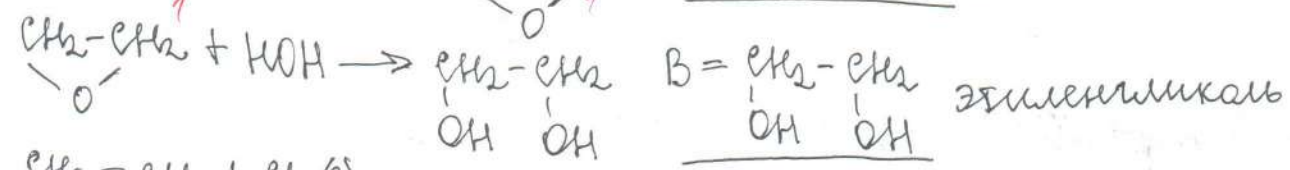 O
CH₂-CH₂ + HOH → CH₂-CH₂ B = CH₂-CH₂ этиленгликоль
O OH OH OH OH